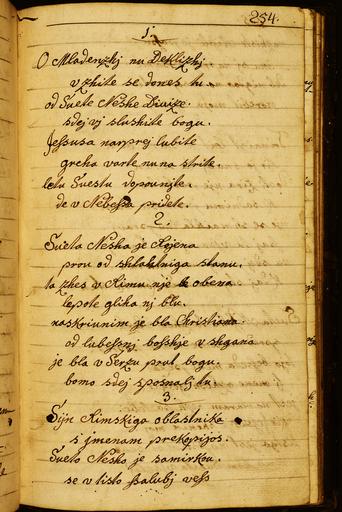 254.
1.
O Mladenzhj nu Deklizhj
vzhite se dones tu.
od Svete Neshe Divize.
sdej vj slushite bogu.
Jessusa narprej lubite
greha varte nu na strite.
letu Svestu dopounite.
de v Nebessa pridete.
2.
Sveta Nesha je Rojena
prou od shlahtniga stanu.
ta zhes v Rimu nje obena
lepote glika nj blu.
naskriunim je bla Christiana
od lubesnj boshje vshgana
je bla v Serzu prut bogu.
bomo sdej sposnalj tu.
3.
Sijn Rimskiga oblastnika
s jmenam prekopijos.
Sveto Nesho je samirkou.
se v listo salubj vess